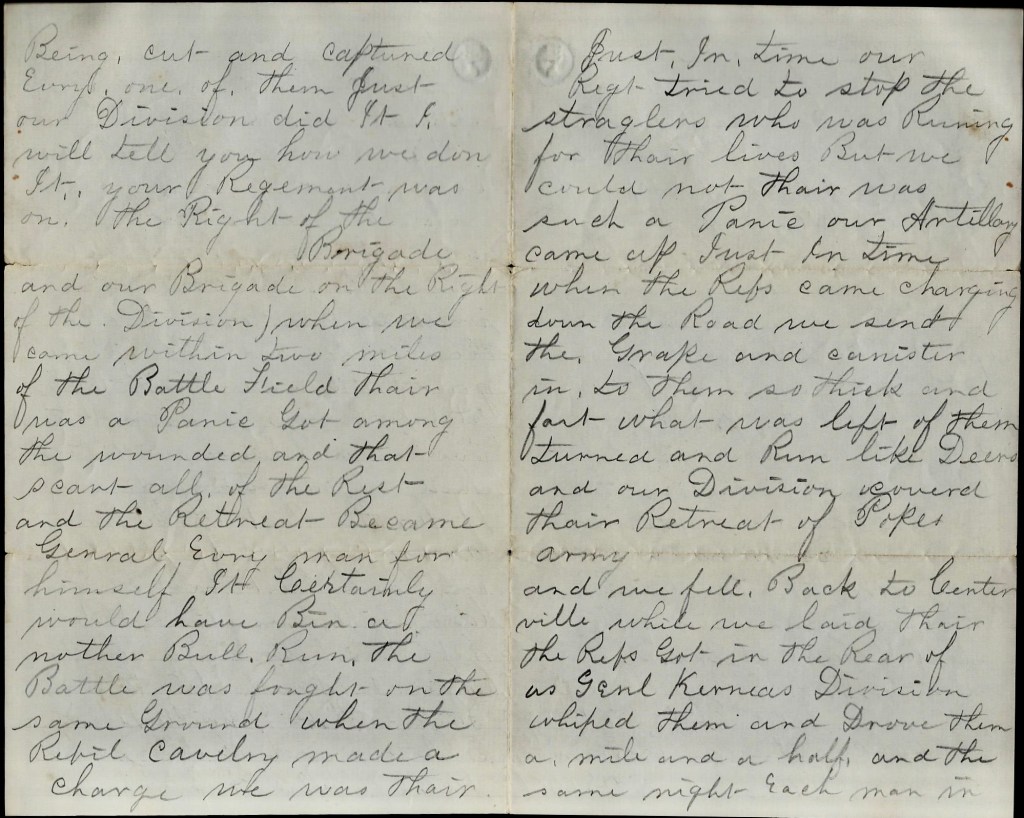 Being, cut and captured
Evry, one, of, them Just
our Division did It I,
will tell you how we don
It,, your Regement was
on, the Right of the
Brigade
and our Brigade on the Right
of the. Division) when we
came within two miles
of the Battle Field thair
was a Panic Got among
the wounded and that
scart all, of the Rest
and the Retreat Became
Genral Evry man for
himself It Certainly
would have Bin a
nother Bull, Run, the
Battle was fought on the
same Ground when the
Rebil Cavelry made a
charge we was thair
Just, In, time our
Regt tried to stop the
straglers who was Runing
for thair lives But we
could not thair was
such a Panic our Artillary
came up Just In time
when the Rebs came charging
down the Road we send
the, Grape and canister
in, to them so thick and
fast what was left of them
turned and Run like Deers
and our Division coverd
thair Retreat of Popes
army
and we fell, Back to Center
ville while we laid thair
the Rebs Got in the Rear of
us Genl Kerneas Division
whiped them and Drove them
a, mile and a half, and the
same night Each man in